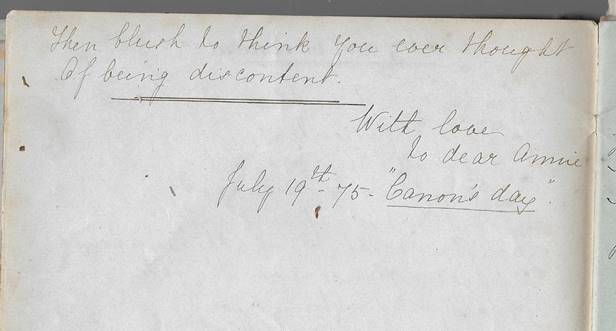 Then blush to think you ever thought
Of being discontent.
With love
to dear Annie
July 19th - 75 - "Canon's day".